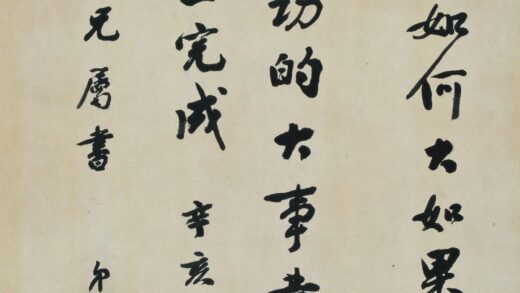 如何大如果
功的大事
完成 辛亥
兄屬書